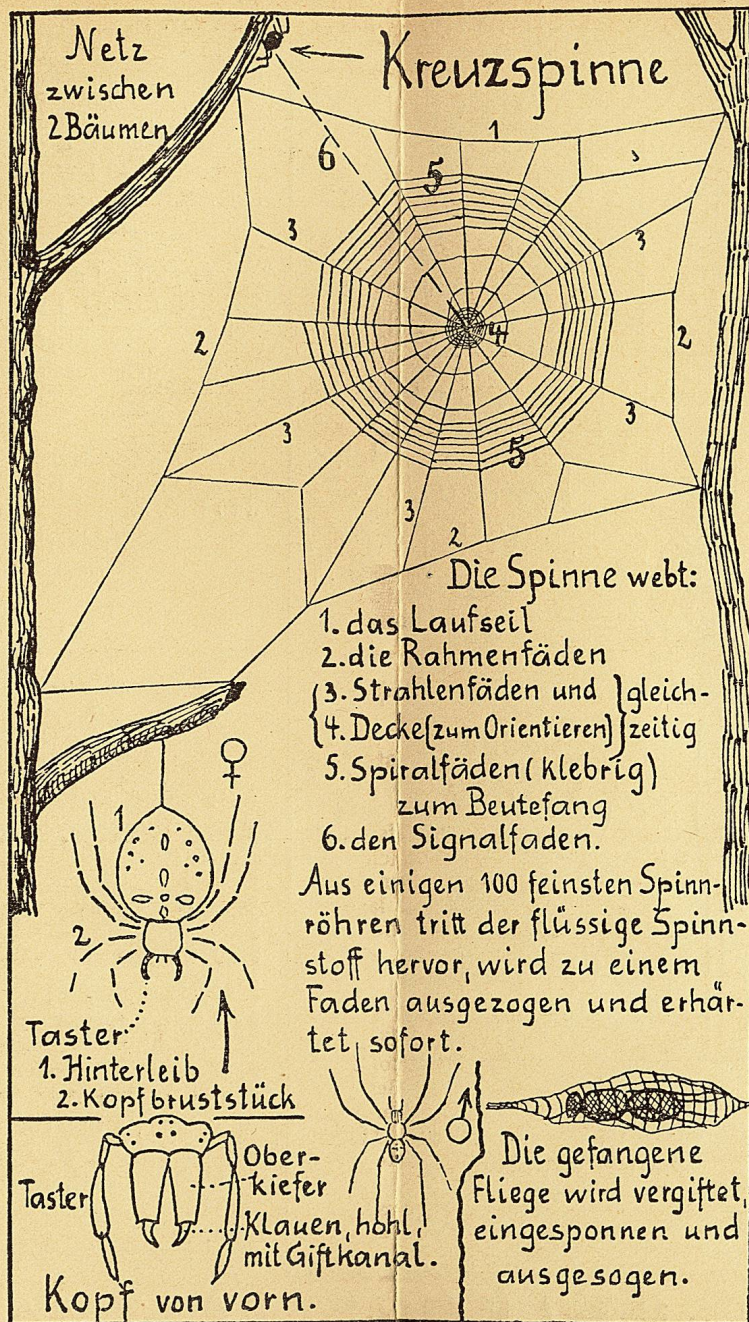 Netz
zwischen
2 Bäumen
Kreuzspinne
1
6
5
3
3
3
2
4
2
3
3
5
3
2
Die Spinne webt:
1. das Laufseil
2. die Rahmenfäden
{3. Strahlenfäden und } gleich-
{4. Decke [zum Orientieren] } zeitig
5. Spiralfäden (klebrig)
zum Beutefang
6. den Signalfaden.
♀
1
2
Taster
1. Hinterleib
2. Kopfbruststück
Aus einigen 100 feinsten Spinn-
röhren tritt der flüssige Spinn-
stoff hervor, wird zu einem
Faden ausgezogen und erhär-
tet sofort.
Taster
Ober-
kiefer
Klauen, hohl,
mit Giftkanal.
Kopf von vorn.
♂
Die gefangene
Fliege wird vergiftet,
eingesponnen und
ausgesogen.